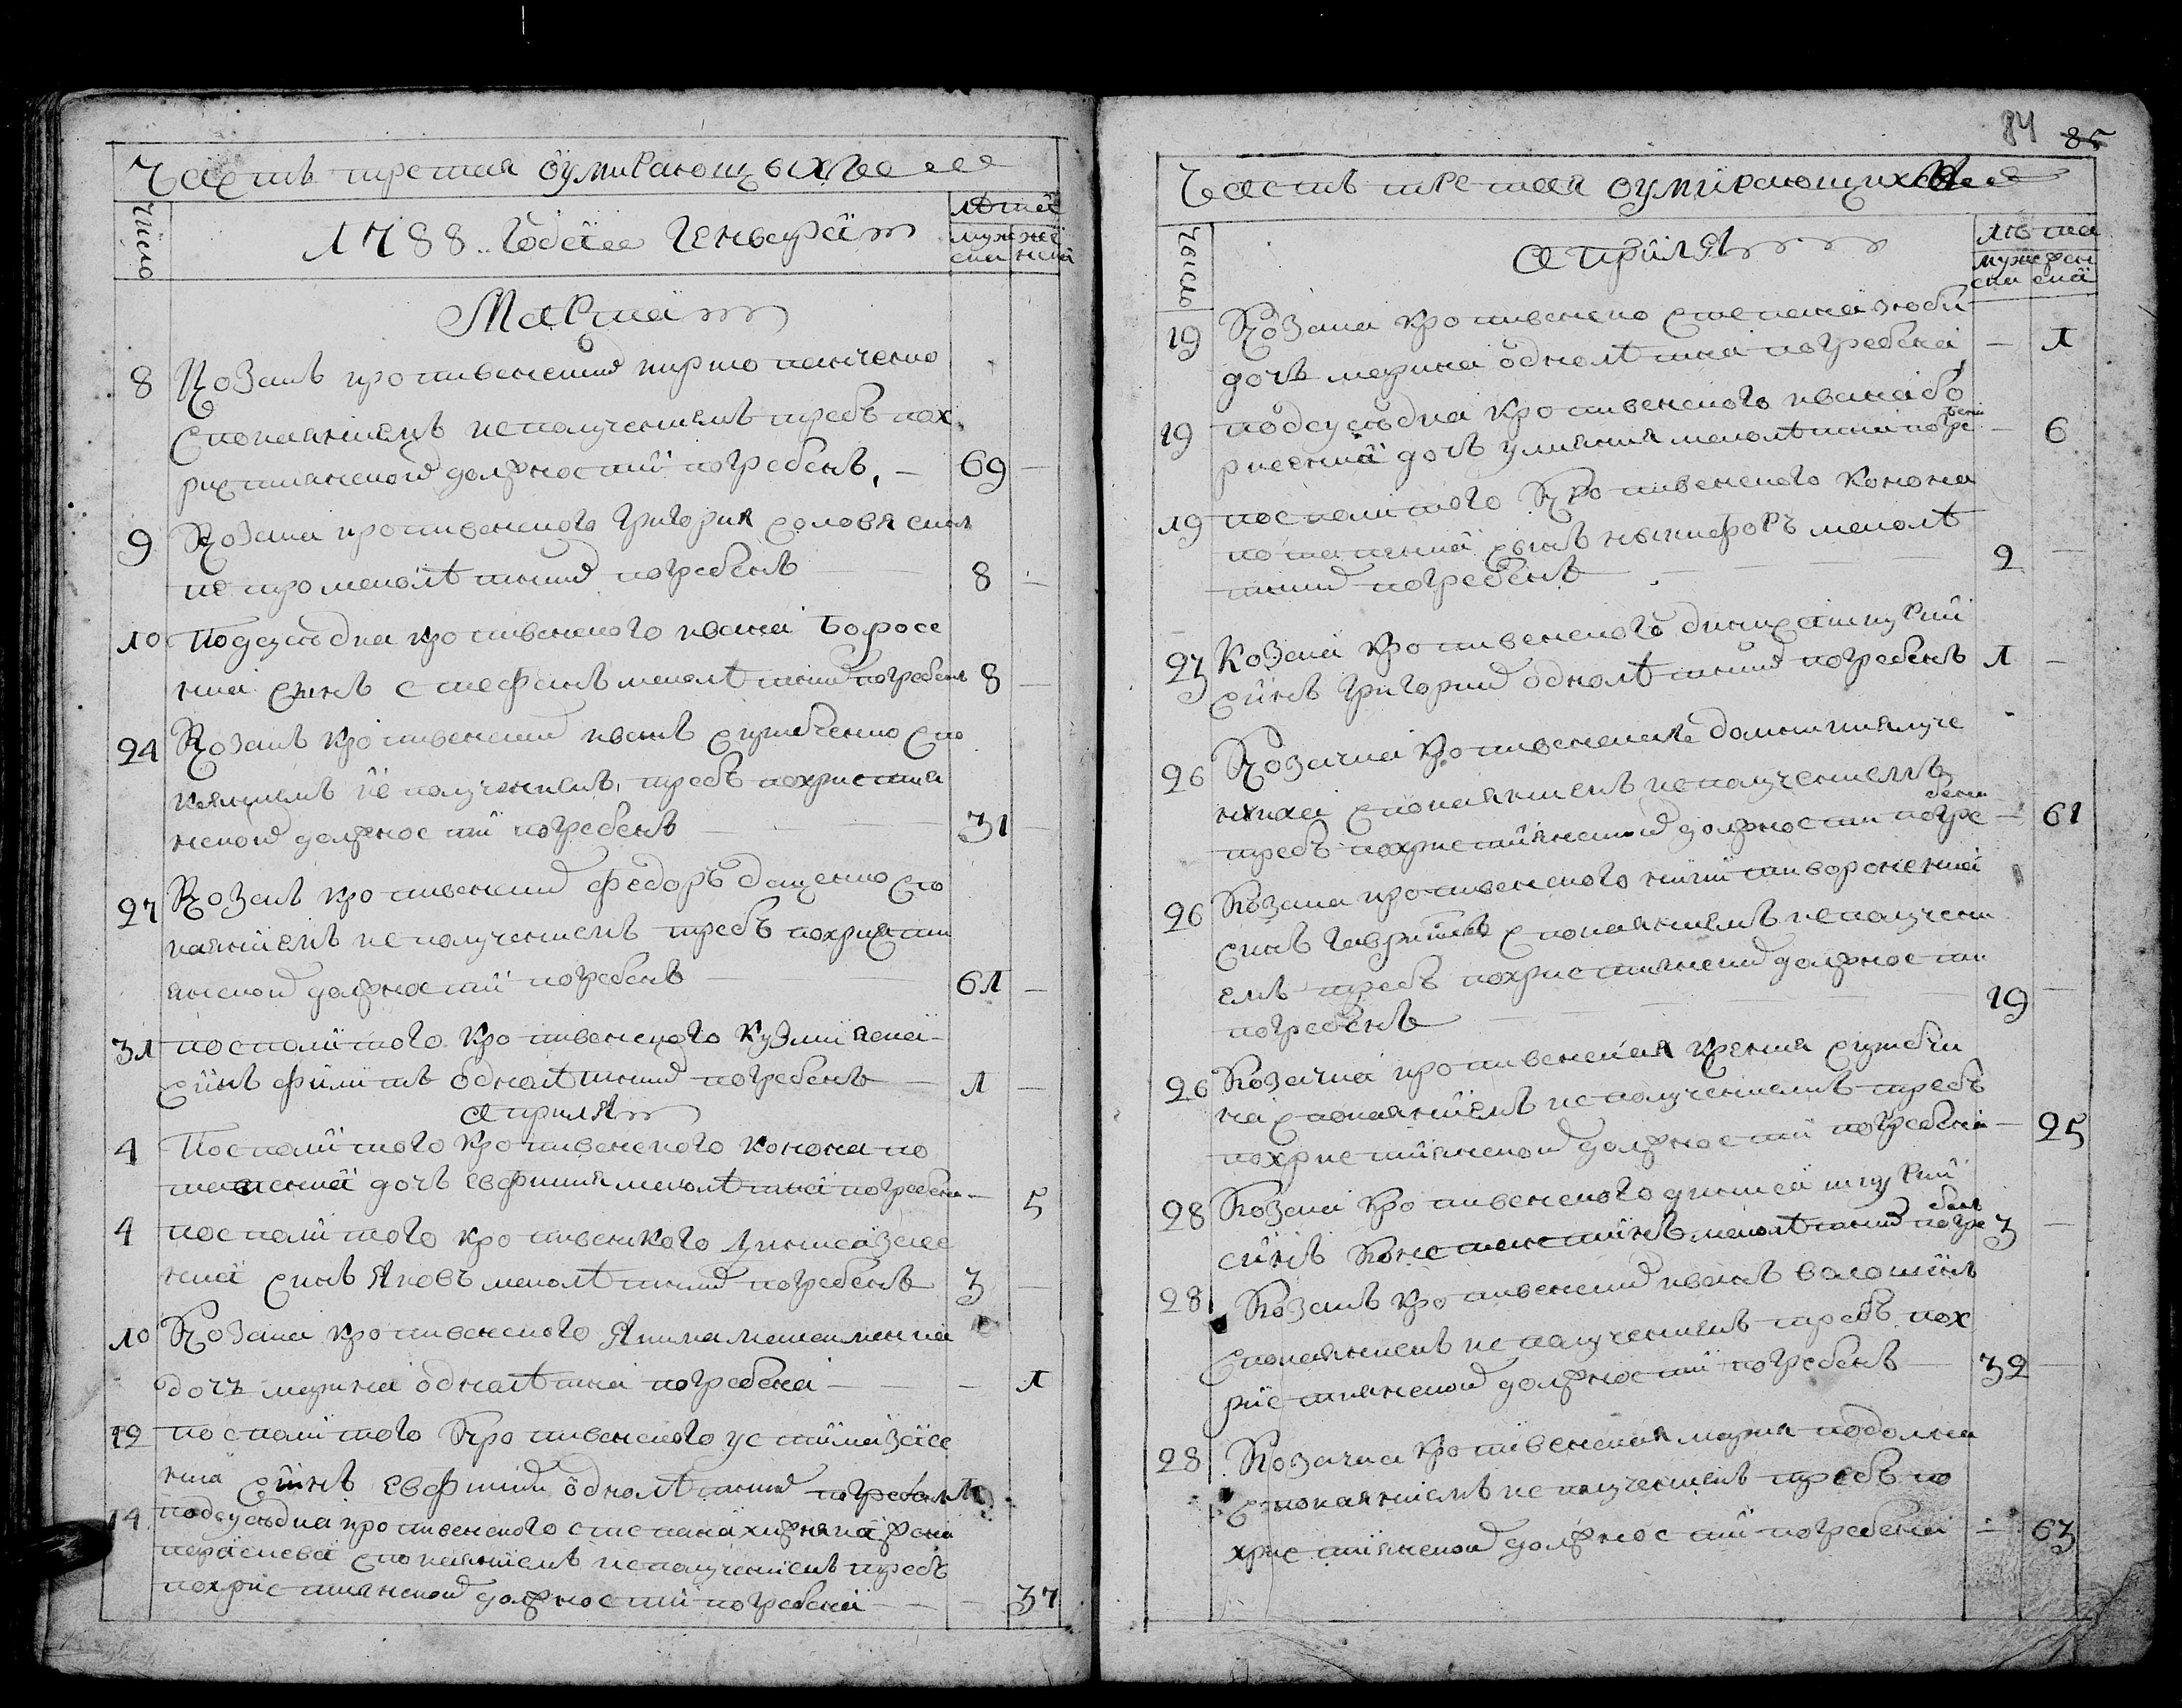 Часть третая оумирающыхъ
Число
1788 Года Генваря
лѣта
муж жен
ска ска
Марта
8 Козакъ кротивенский кирило панченко
Споканиемъ исполучениемъ требъ пох
ристианской должности погребенъ, 69
9 Козака кротивенского Григория соловя синъ
петро малолѣтний погребенъ 8
10 Подсусѣдка кротивенского ивана Боросе
нка синъ стефанъ малолѣтний погребенъ 8
24 Козакъ кротивенский иванъ спо
каяниемъ исполучениемъ требъ похристиа
нской должности погребенъ 31
27 Козакъ кротивенский федоръ доценко спо
каяниемъ исполучениемъ требъ похристи
янской должности погребенъ 61
31 посполитого кротивенского Кузми
синъ филипъ однолѣтний погребенъ 1
априля
4 Посполитого кротивенского конона по
дочъ евфимия малолѣтна погребена 5
4 посполитого кротивенского
нка синъ Яковъ малолѣтний погребенъ 3
10 Козака кротивенского
дочъ марина однолѣтна погребена 1
12 посполитого кротивенского устима
нка синъ евфимий однолѣтний погребенъ 1
14 подсусѣдка кротивенского степана жена
параскева споканиемъ исполучениемъ требъ
похристианской должности погребена 37
84 85
Часть третая оумирающихъ
Число
априля
лѣта
муж жен
ска ска
19 Козака кротивенского степана
дочъ марина однолѣтна погребена 1
19 подсусѣдка кротивенского ивана бо
рисенка дочъ улияния малолѣтна погре
бена 6
19 посполитого кротивенского конона
синъ никифоръ малолѣ
тний погребенъ 2
23 Козака кротивенского дениса
синъ Григорий однолѣтний погребенъ 1
26 Козачка кротивенская
споканиемъ исполучениемъ
требъ похристиянской должности погре
бена 61
26 Козака кротивенского никити воронснка
синъ Гавриилъ споканиемъ исполучени
емъ требъ похристиянский должности
погребенъ 19
26 Козачка кротивенская
споканиемъ исполучениемъ требъ
похристиянской должности погребена 25
28 Козака кротивенского дениса
синъ Константинъ малолѣтний погре
бенъ 3
28 Козакъ кротивенский иванъ волошинъ
споканиемъ исполучениемъ требъ пох
ристианской должности погребенъ 32
28 Козачка кротивенская мария
споканиемъ исполучениемъ требъ по
християнской должности погребена 63